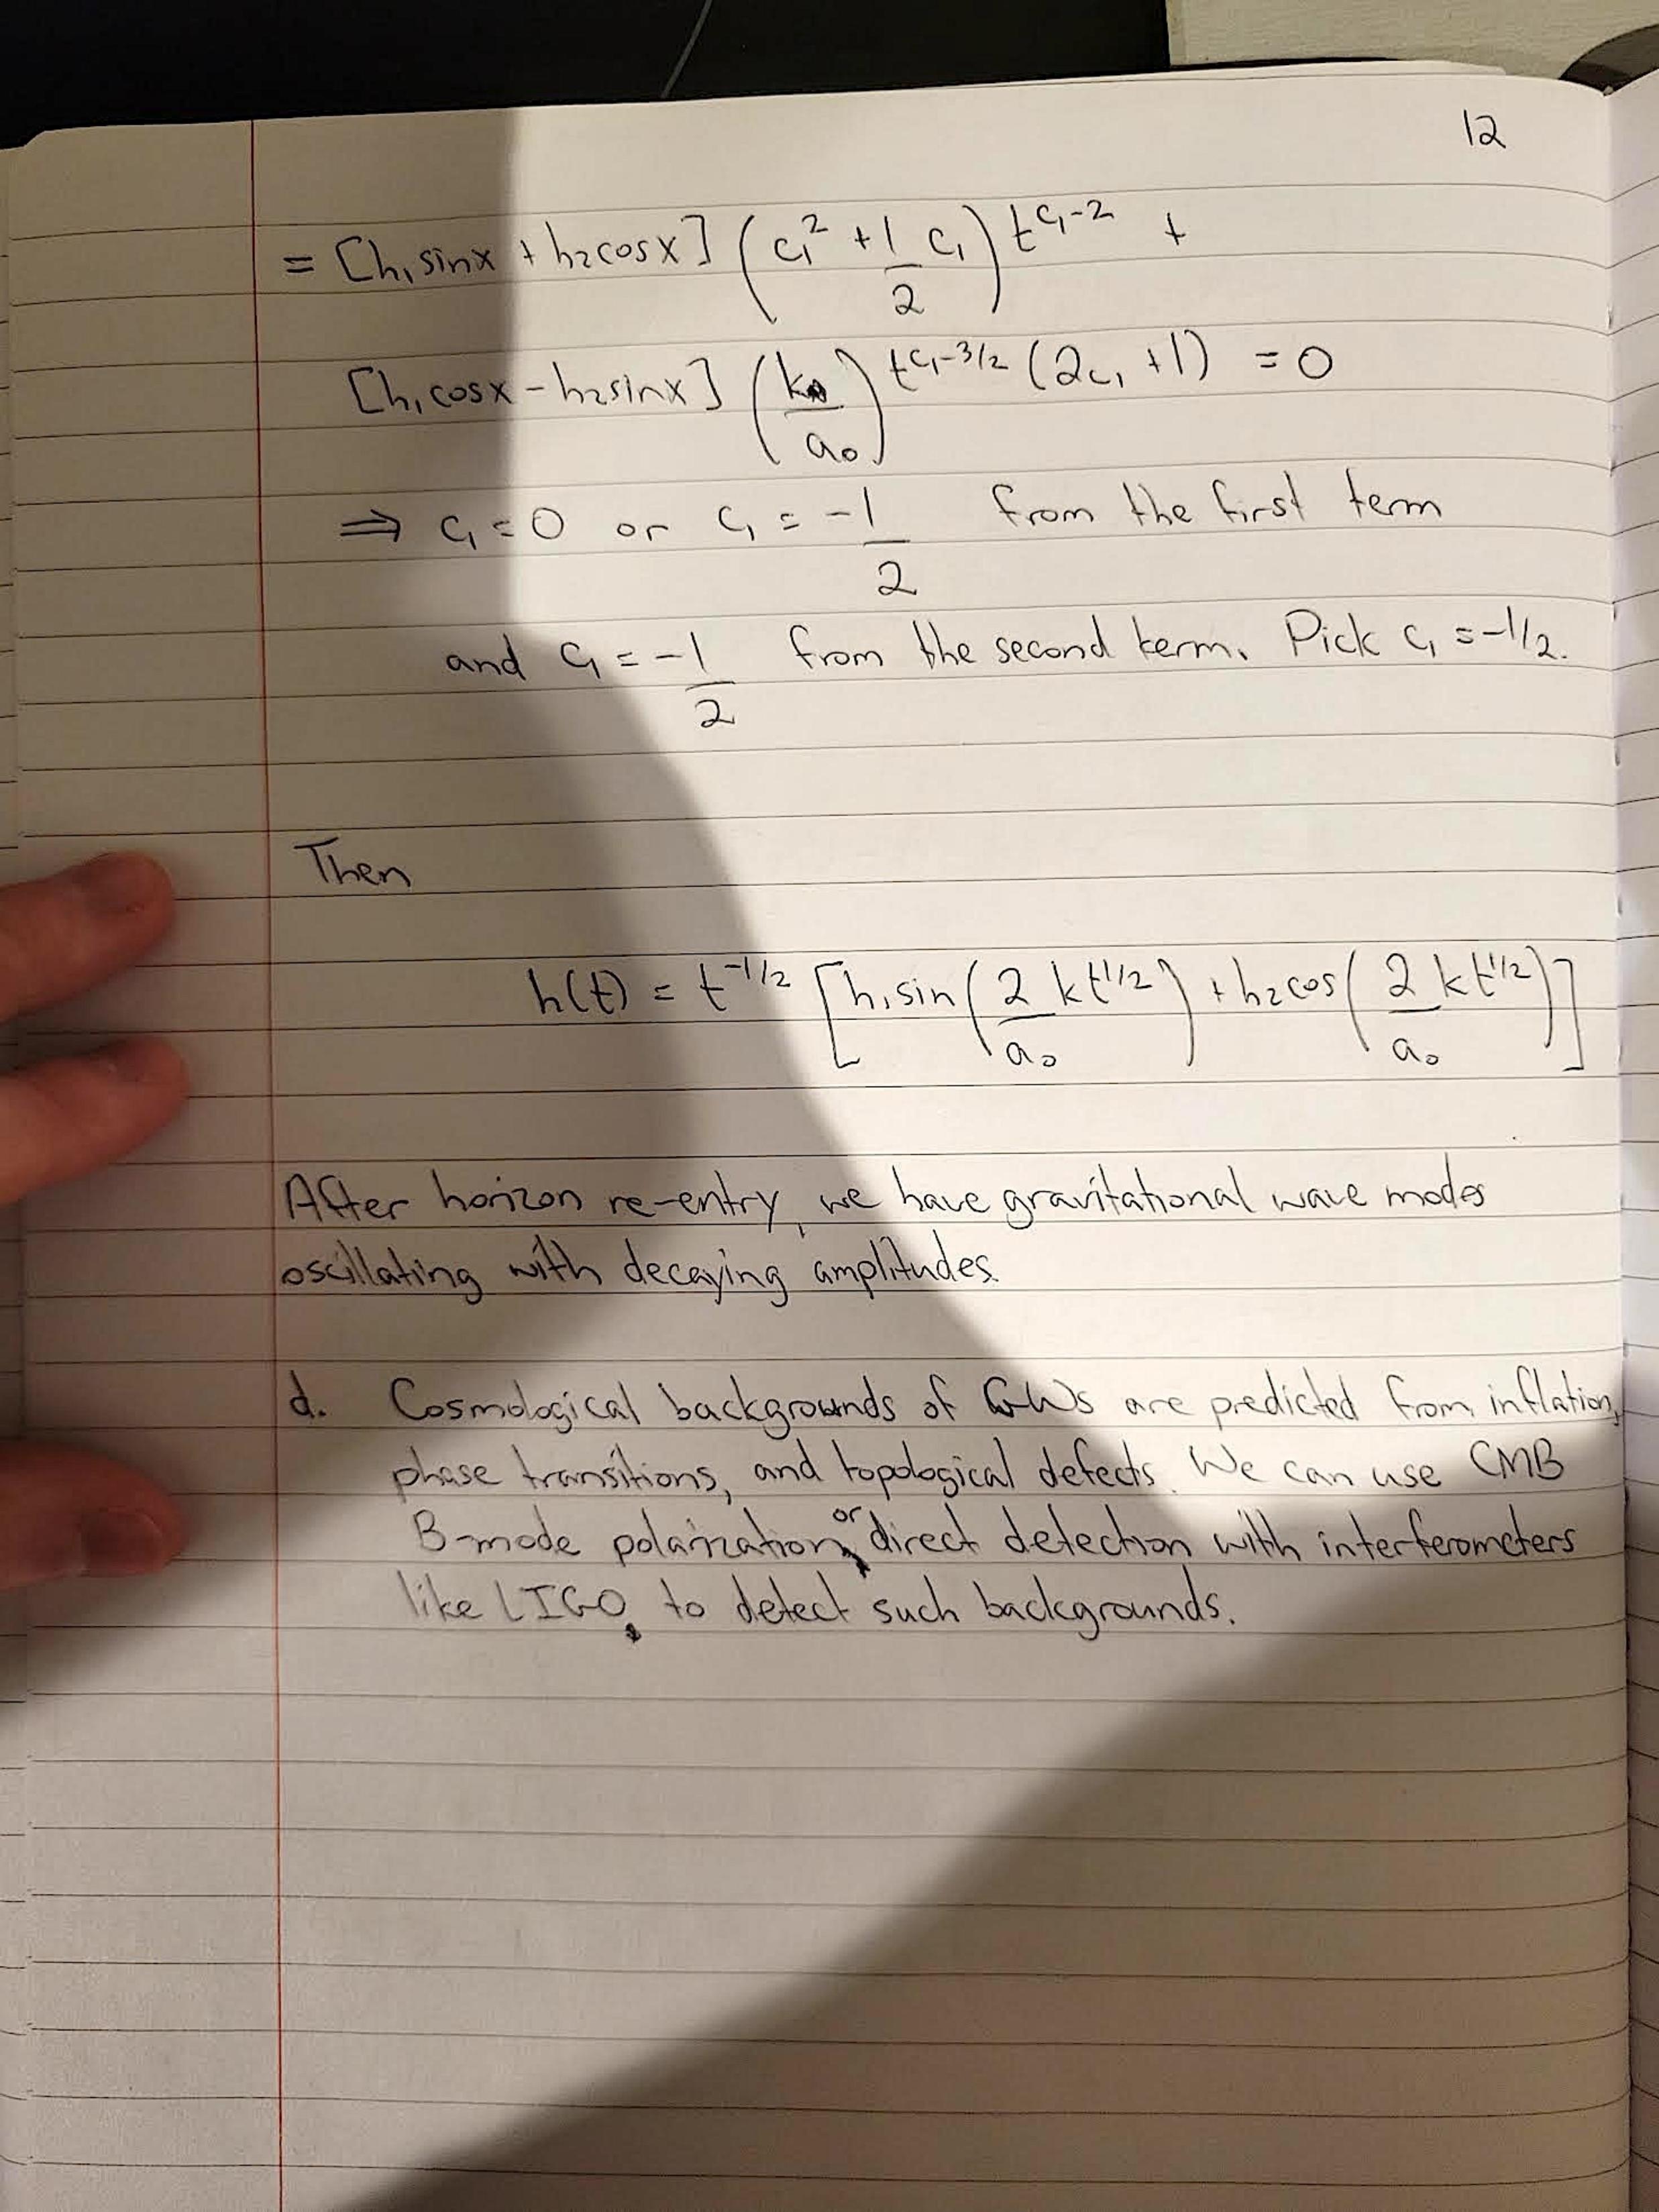 12
= [h₁ sinx + h₂cosx] (c₁² + 1/2 c₁) t^(c₁-2) +
[h₁cosx - h₂sinx] (k/a₀) t^(c₁-3/2) (2c₁ + 1) = 0
⇒ c₁ = 0 or c₁ = -1/2 from the first term
and c₁ = -1/2 from the second term. Pick c₁ = -1/2.
Then
h(t) = t^(-1/2) [h₁sin(2/a₀ kt^(1/2)) + h₂cos(2/a₀ kt^(1/2))]
After horizon re-entry, we have gravitational wave modes
oscillating with decaying amplitudes.
d. Cosmological backgrounds of GWs are predicted from inflation,
phase transitions, and topological defects. We can use CMB
B-mode polarization or direct detection with interferometers
like LIGO to detect such backgrounds.